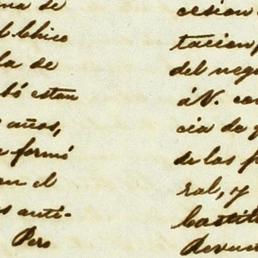 na de
l Chico
la de
bó estan
años,
formó
en el
s anti-
Pero
cesion
tacion
del neg
á V. con
cia de
de las p
ral, y
Castil
devue